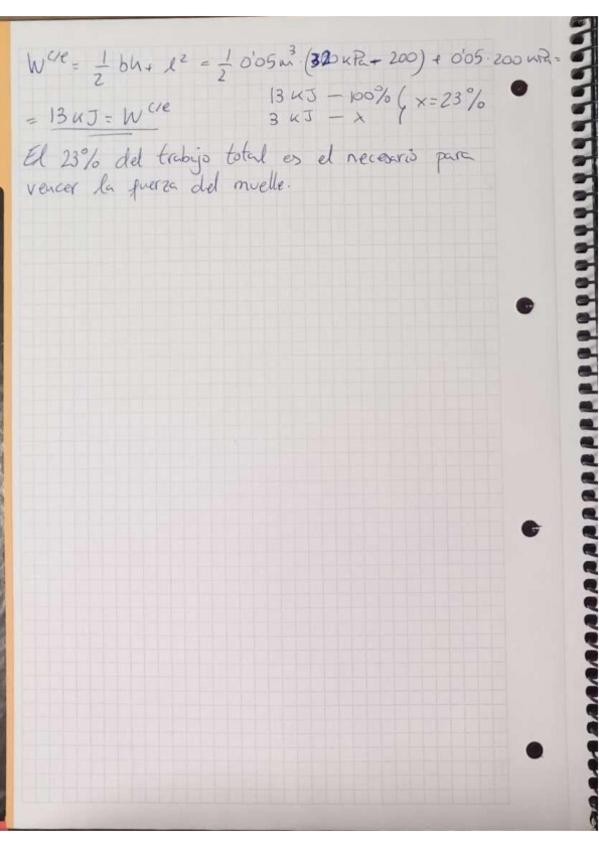 W^c/e = 1/2 bh + l² = 1/2 0'05m³ · (320kPa - 200) + 0'05 · 200 kPa =
= 13 kJ = W^c/e 13 kJ - 100% 3 kJ - x x = 23%
El 23% del trabajo total es el necesario para
vencer la fuerza del muelle.